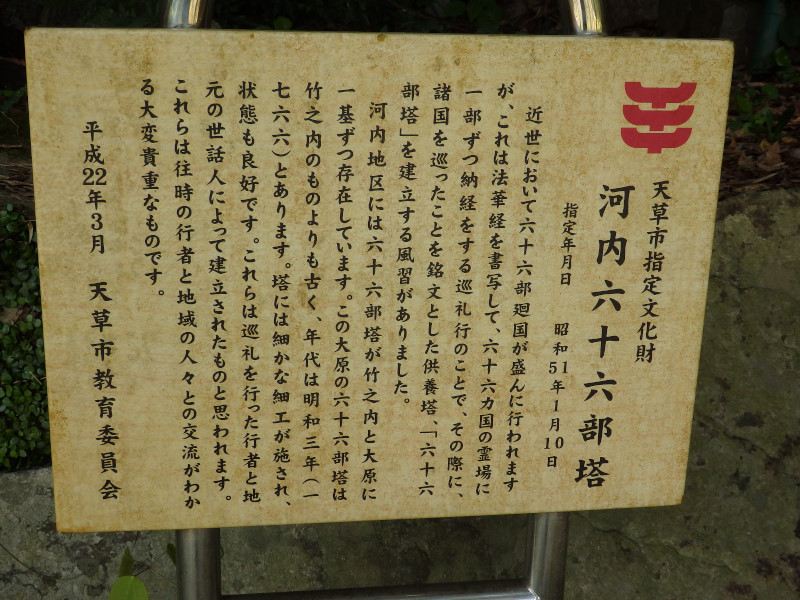 天草市指定文化財
河内六十六部塔
指定年月日　昭和51年1月10日
近世において六十六部廻国が盛んに行われます
が、これは法華経を書写して、六十六カ国の霊場に
一部ずつ納経をする巡礼行のことで、その際に、
諸国を巡ったことを銘文とした供養塔、「六十六
部塔」を建立する風習がありました。
河内地区には六十六部塔が竹之内と大原に
一基ずつ存在しています。この大原の六十六部塔は
竹之内のものよりも古く、年代は明和三年（一
七六六）とあります。塔には細かな細工が施され、
状態も良好です。これらは巡礼を行った行者と地
元の世話人によって建立されたものと思われます。
これらは往時の行者と地域の人々との交流がわか
る大変貴重なものです。
平成22年3月　天草市教育委員会